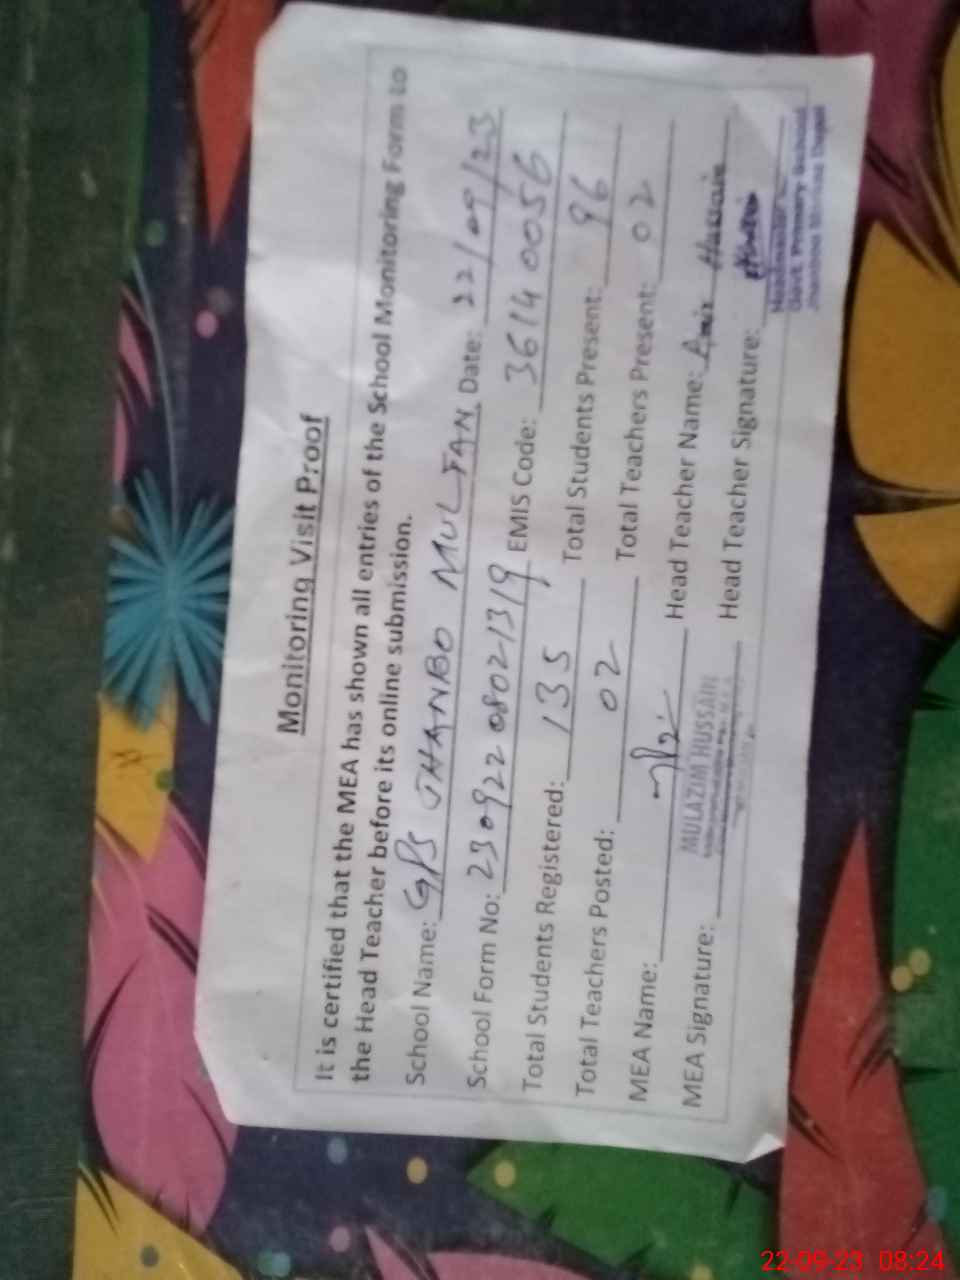 Monitoring Visit Proof
It is certified that the MEA has shown all entries of the School Monitoring Form to
the Head Teacher before its online submission.
School Name: GPS JHANBO MULTAN Date: 22/09/23
School Form No: 23092208021319 EMIS Code: 36140056
Total Students Registered: 135 Total Students Present: 96
Total Teachers Posted: 02 Total Teachers Present: 02
MEA Name: Head Teacher Name: Amir Hussain
MULAZIM HUSSAIN
MEA Signature: Head Teacher Signature:
Govt. Primary School
22-09-23 08:24